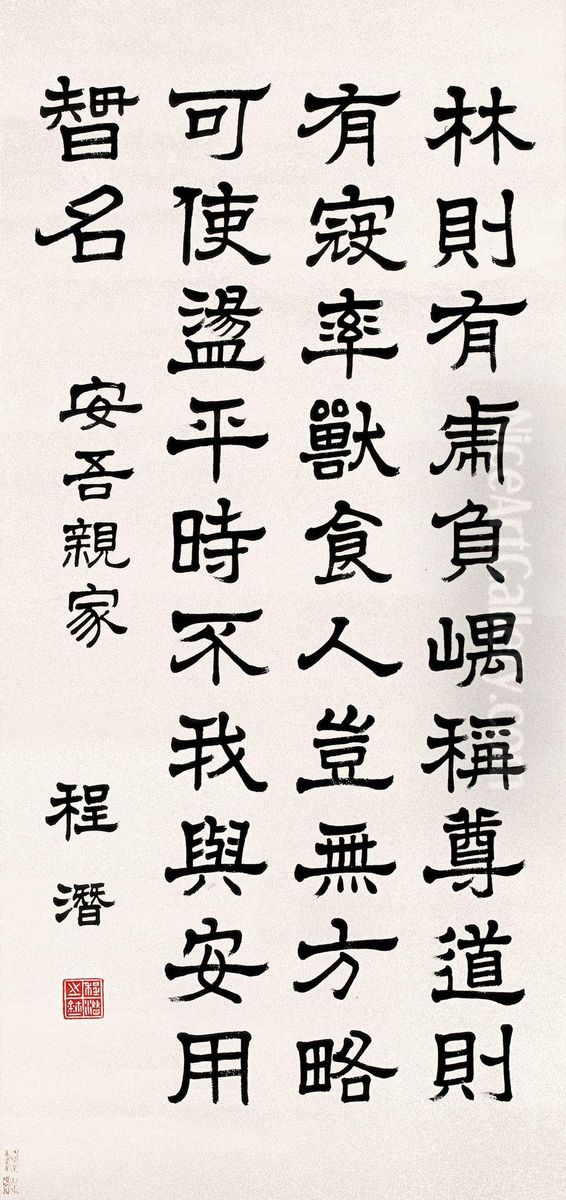 林則有虎負嵎稱尊道則
有寇率獸食人豈無方略
可使盪平時不我與安用
智名
安吾親家
程潛
程潛之鉥
NiceArtGallery.com